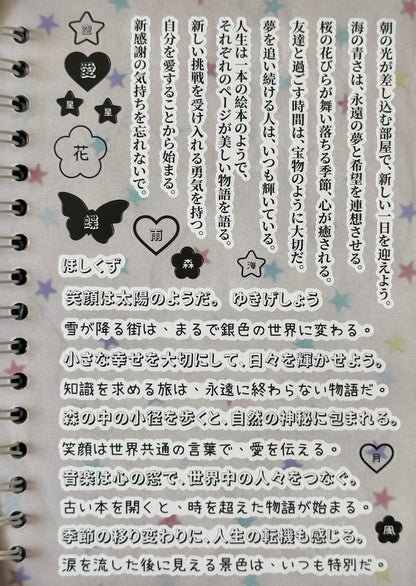 朝の光が差し込む部屋で、新しい一日を迎えよう。
海の青さは、永遠の夢と希望を連想させる。
桜の花びらが舞い落ちる季節、心が癒される。
友達と過ごす時間は、宝物のように大切だ。
夢を追い続ける人は、いつも輝いている。
人生は一本の絵本のようで、
それぞれのページが美しい物語を語る。
新しい挑戦を受け入れる勇気を持つ。
自分を愛することから始まる。
新感謝の気持ちを忘れないで。
空
愛
星
星
花
蝶
雨
森
海
ほしくず
笑顔は太陽のようだ。 ゆきげしょう
雪が降る街は、まるで銀色の世界に変わる。
小さな幸せを大切にして、日々を輝かせよう。
知識を求める旅は、永遠に終わらない物語だ。
森の中の小径を歩くと、自然の神秘に包まれる。
笑顔は世界共通の言葉で、愛を伝える。
月
音楽は心の窓で、世界中の人々をつなぐ。
古い本を開くと、時を超えた物語が始まる。
風
季節の移り変わりに、人生の転機も感じる。
涙を流した後に見える景色は、いつも特別だ。